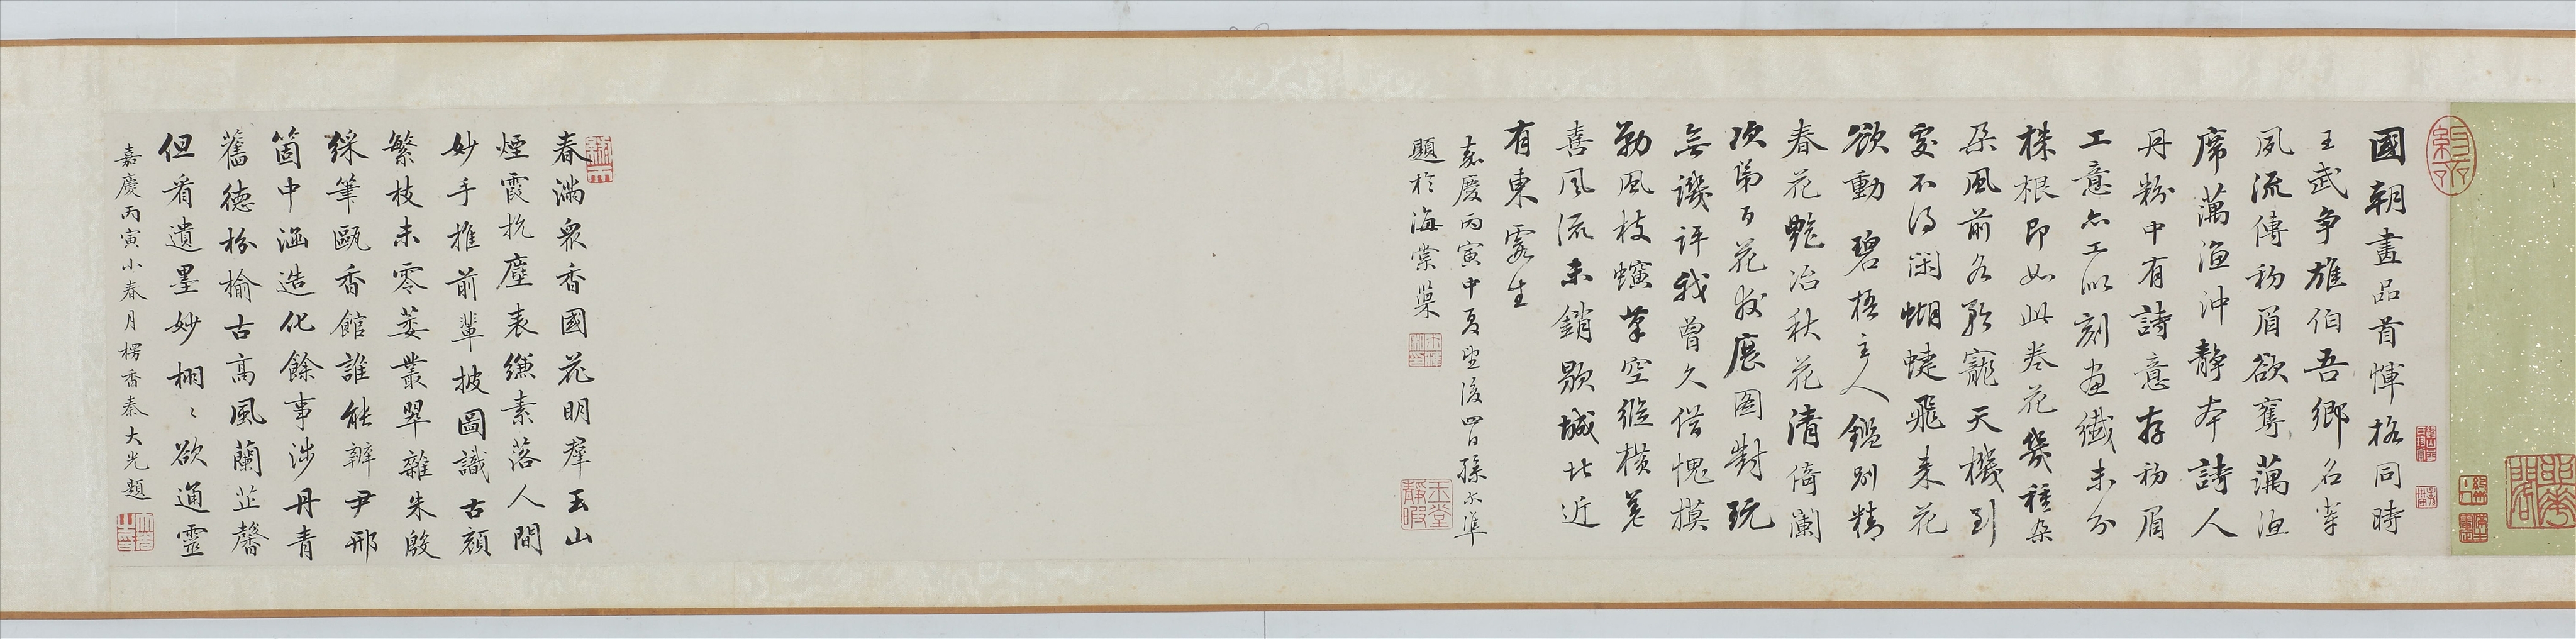 國朝畫品首惲格同時
王武爭雄伯吾鄉名輩
夙流傳礽眉欲奪藕漁
席藕漁沖靜本詩人
丹粉中有詩意存礽眉
工意亦工似刻畫纖未分
株根即如此卷花幾種朵
朵風前各矜寵天機到
處不得閑蝴蝶飛來花
欲動碧梧主人鑑別精
春花艷冶秋花清倚闌
次第百花放展圖對玩
無譏評我曾久借愧摸
勒風枝蠙葉空縱橫差
喜風流未銷歇城北近
有東雲生
嘉慶丙寅中夏望後四日孫尔準
題於海棠巢
玉堂
靜暇
春滿眾香國花明群玉山
煙霞抗塵表縑素落人間
妙手推前輩披圖識古顏
繁枝未零萎叢翠雜朱殷
綵筆甌香館誰能辨尹邢
箇中涵造化餘事涉丹青
舊德枌榆古高風蘭芷馨
但看遺墨妙栩〻欲通靈
嘉慶丙寅小春月楞香秦大光題